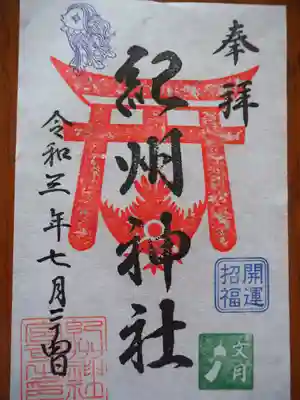 奉拝
紀州神社
令和三年七月
開運
招福
文月